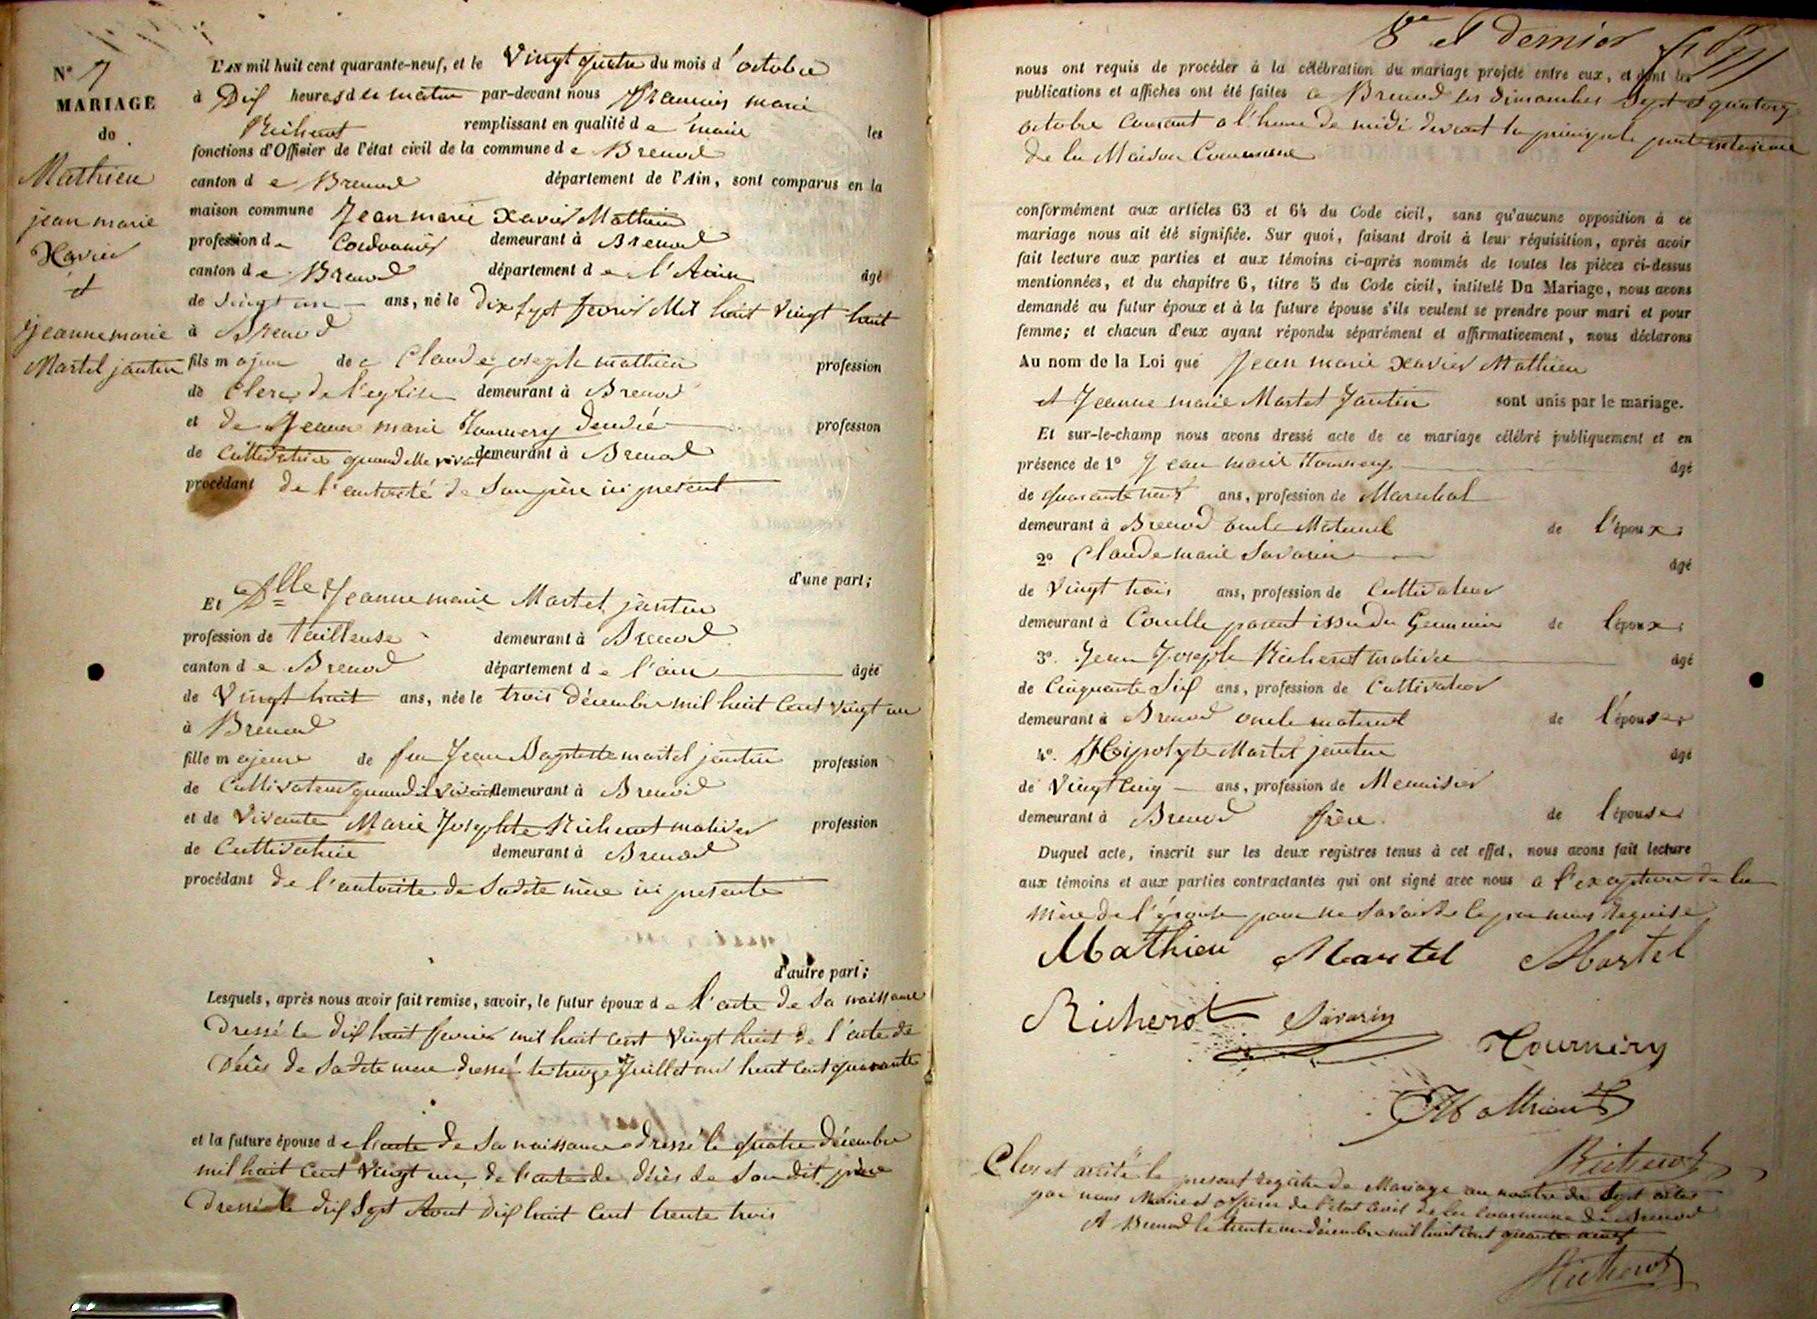 N° 7
MARIAGE
de
Mathieu
jean marie
Xavier
et
jeanne marie
Martel jantin
L'AN mil huit cent quarante-neuf, et le Vingt quatre du mois d'octobre
à Dix heures du matin par-devant nous françois marie
Richerot remplissant en qualité de maire les
fonctions d'Officier de l'état civil de la commune de Brenod
canton de Brenod département de l'Ain, sont comparus en la
maison commune Jean marie Xavier Mathieu
profession de Cordonnier demeurant à Brenod
canton de Brenod département de l'Ain âgé
de vingt un ans, né le dix sept fevrier Mil huit vingt huit
à Brenod
fils majeur de Claude joseph mathieu profession
de Clerc de l'eglise demeurant à Brenod
et de Jeanne marie Tournery profession
de Cultivatrice quand elle vivait demeurant à Brenod
procédant de l'autorité de Son père ici présent
d'une part;
Et Dlle Jeanne marie Martel jantin
profession de tailleuse demeurant à Brenod
canton de Brenod département de l'ain âgée
de Vingt huit ans, née le trois décembre mil huit Cent vingt un
à Brenod
fille majeure de feu Jean Baptiste martel jantin profession
de Cultivateur quand il vivait demeurant à Brenod
et de Vivante Marie Josephte Richerot profession
de Cultivatrice demeurant à Brenod
procédant de l'autorite de Sadite mère ici presente
d'autre part;
Lesquels, après nous avoir fait remise, savoir, le futur époux de l'acte de Sa naissance
Dressé le dix huit fevrier mil huit cent Vingt huit de l'acte de
décès de Sadite mere dressé le Juillet mil huit Cent quarante
et la future épouse de l'acte de Sa naissance dressé le quatre décembre
mil huit Cent Vingt un, de l'acte de décès de Son dit père
Dressé le dix Sept Aout dix huit Cent trente trois
8me et dernier
nous ont requis de procéder à la célébration du mariage projeté entre eux, et dont les
publications et affiches ont été faites a Brenod les dimanches Sept et quatorze
octobre Courant a l'heure de midi devant la principale porte exterieure
de la Maison Commune
conformément aux articles 63 et 64 du Code civil, sans qu'aucune opposition à ce
mariage nous ait été signifiée. Sur quoi, faisant droit à leur réquisition, après avoir
fait lecture aux parties et aux témoins ci-après nommés de toutes les pièces ci-dessus
mentionnées, et du chapitre 6, titre 5 du Code civil, intitulé Du Mariage, nous avons
demandé au futur époux et à la future épouse s'ils veulent se prendre pour mari et pour
femme; et chacun d'eux ayant répondu séparément et affirmativement, nous déclarons
Au nom de la Loi que Jean marie Xavier Mathieu
et Jeanne marie Martel Jantin sont unis par le mariage.
Et sur-le-champ nous avons dressé acte de ce mariage célébré publiquement et en
présence de 1° Jean marie Tournery âgé
de quarante neuf ans, profession de Marechal
demeurant à Brenod oncle Maternel de l'époux;
2° Claude marie Savarin âgé
de Vingt trois ans, profession de Cultivateur
demeurant à Corcelle parent issu du Germain de l'époux;
3°. Jean Joseph Richerot âgé
de Cinquante Six ans, profession de Cultivateur
demeurant à Brenod oncle maternel de l'épouse;
4°. Hipolyte Martel jantin âgé
de Vingt Cinq ans, profession de Menuisier
demeurant à Brenod frère de l'épouse;
Duquel acte, inscrit sur les deux registres tenus à cet effet, nous avons fait lecture
aux témoins et aux parties contractantes qui ont signé avec nous a l'exception de la
Mère de l'épouse pour ne Savoir de ce par nous requise
Mathieu Martel Martel
Richerot Savarin
Tournery
Mathieu
Richerot
Clos et arrêté le présent registre de Mariage au nombre de Sept actes
par nous Maire et officier de l'état Civil de la Commune de Brenod
A Brenod le trente un décembre mil huit Cent quarante neuf
Richerot